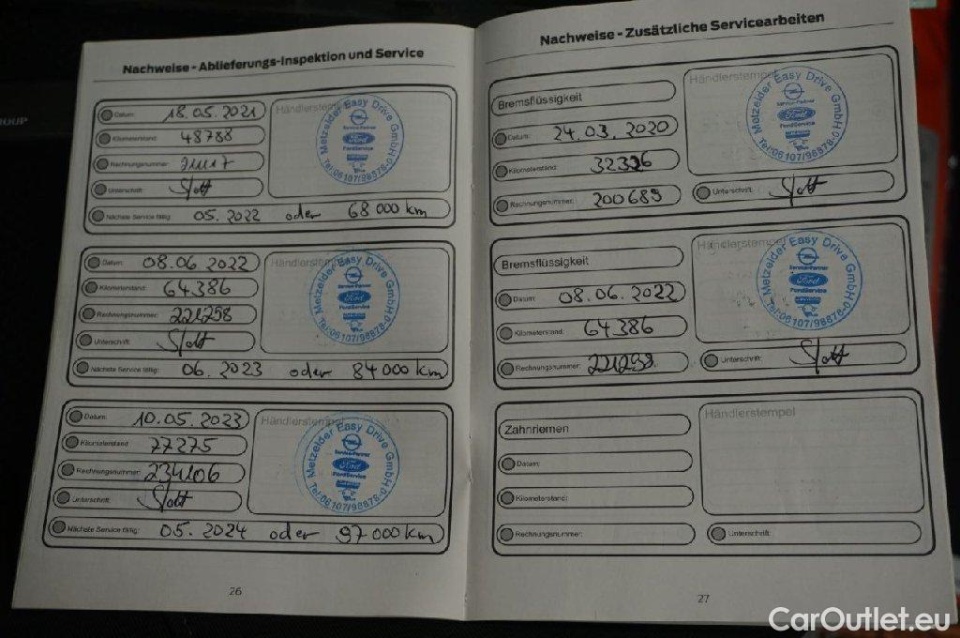 Nachweise - Ablieferungs-Inspektion und Service
Datum: 18.05.2021
Händlerstempel
Kilometerstand: 48788
Rechnungsnummer:
Unterschrift:
Nächste Service fällig: 05.2022 oder 68 000 km
Metzelder Easy Drive GmbH
Service-Partner
Ford
FordService
Tel: 06107/98878-0
Datum: 08.06.2022
Händlerstempel
Kilometerstand: 64386
Rechnungsnummer: 221258
Unterschrift:
Nächste Service fällig: 06.2023 oder 84 000 km
Metzelder Easy Drive GmbH
Service-Partner
Ford
FordService
Tel: 06107/98878-0
Datum: 10.05.2023
Händlerstempel
Kilometerstand: 77275
Rechnungsnummer: 234106
Unterschrift:
Nächste Service fällig: 05.2024 oder 97 000 km
Metzelder Easy Drive GmbH
Service-Partner
Ford
FordService
Tel: 06107/98878-0
26
Nachweise - Zusätzliche Servicearbeiten
Bremsflüssigkeit
Händlerstempel
Datum: 24.03.2020
Kilometerstand: 32326
Rechnungsnummer: 200689
Unterschrift:
Metzelder Easy Drive GmbH
Service-Partner
Ford
FordService
Tel: 06107/98878-0
Bremsflüssigkeit
Händlerstempel
Datum: 08.06.2022
Kilometerstand: 64386
Rechnungsnummer: 221258
Unterschrift:
Metzelder Easy Drive GmbH
Service-Partner
Ford
FordService
Tel: 06107/98878-0
Zahnriemen
Händlerstempel
Datum:
Kilometerstand:
Rechnungsnummer:
Unterschrift:
27
CarOutlet.eu